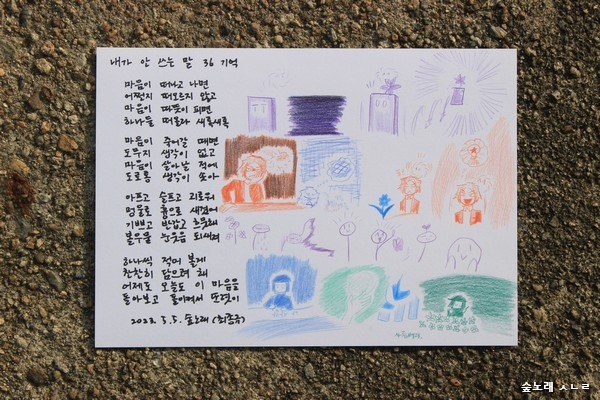 내가 안 쓰는 말 36 기억
마음이 떠나고 나면
어쩐지 떠오르지 않고
마음이 따뜻이 피면
하나둘 떠올라 새록새록
마음이 죽어갈 때면
도무지 생각이 없고
마음이 살아날 적에
도로롱 생각이 솟아
아프고 슬프고 괴로워
멍울로 흉으로 새겼어
기쁘고 반갑고 흐뭇해
눈웃음 되새겨
하나씩 적어 볼게
찬찬히 담으려 해
어제도 오늘도 이 마음을
돌아보고 돌이켜서
2023. 5.5. 숲노래 (최종규)
숲노래 ㅅㄴㄹ